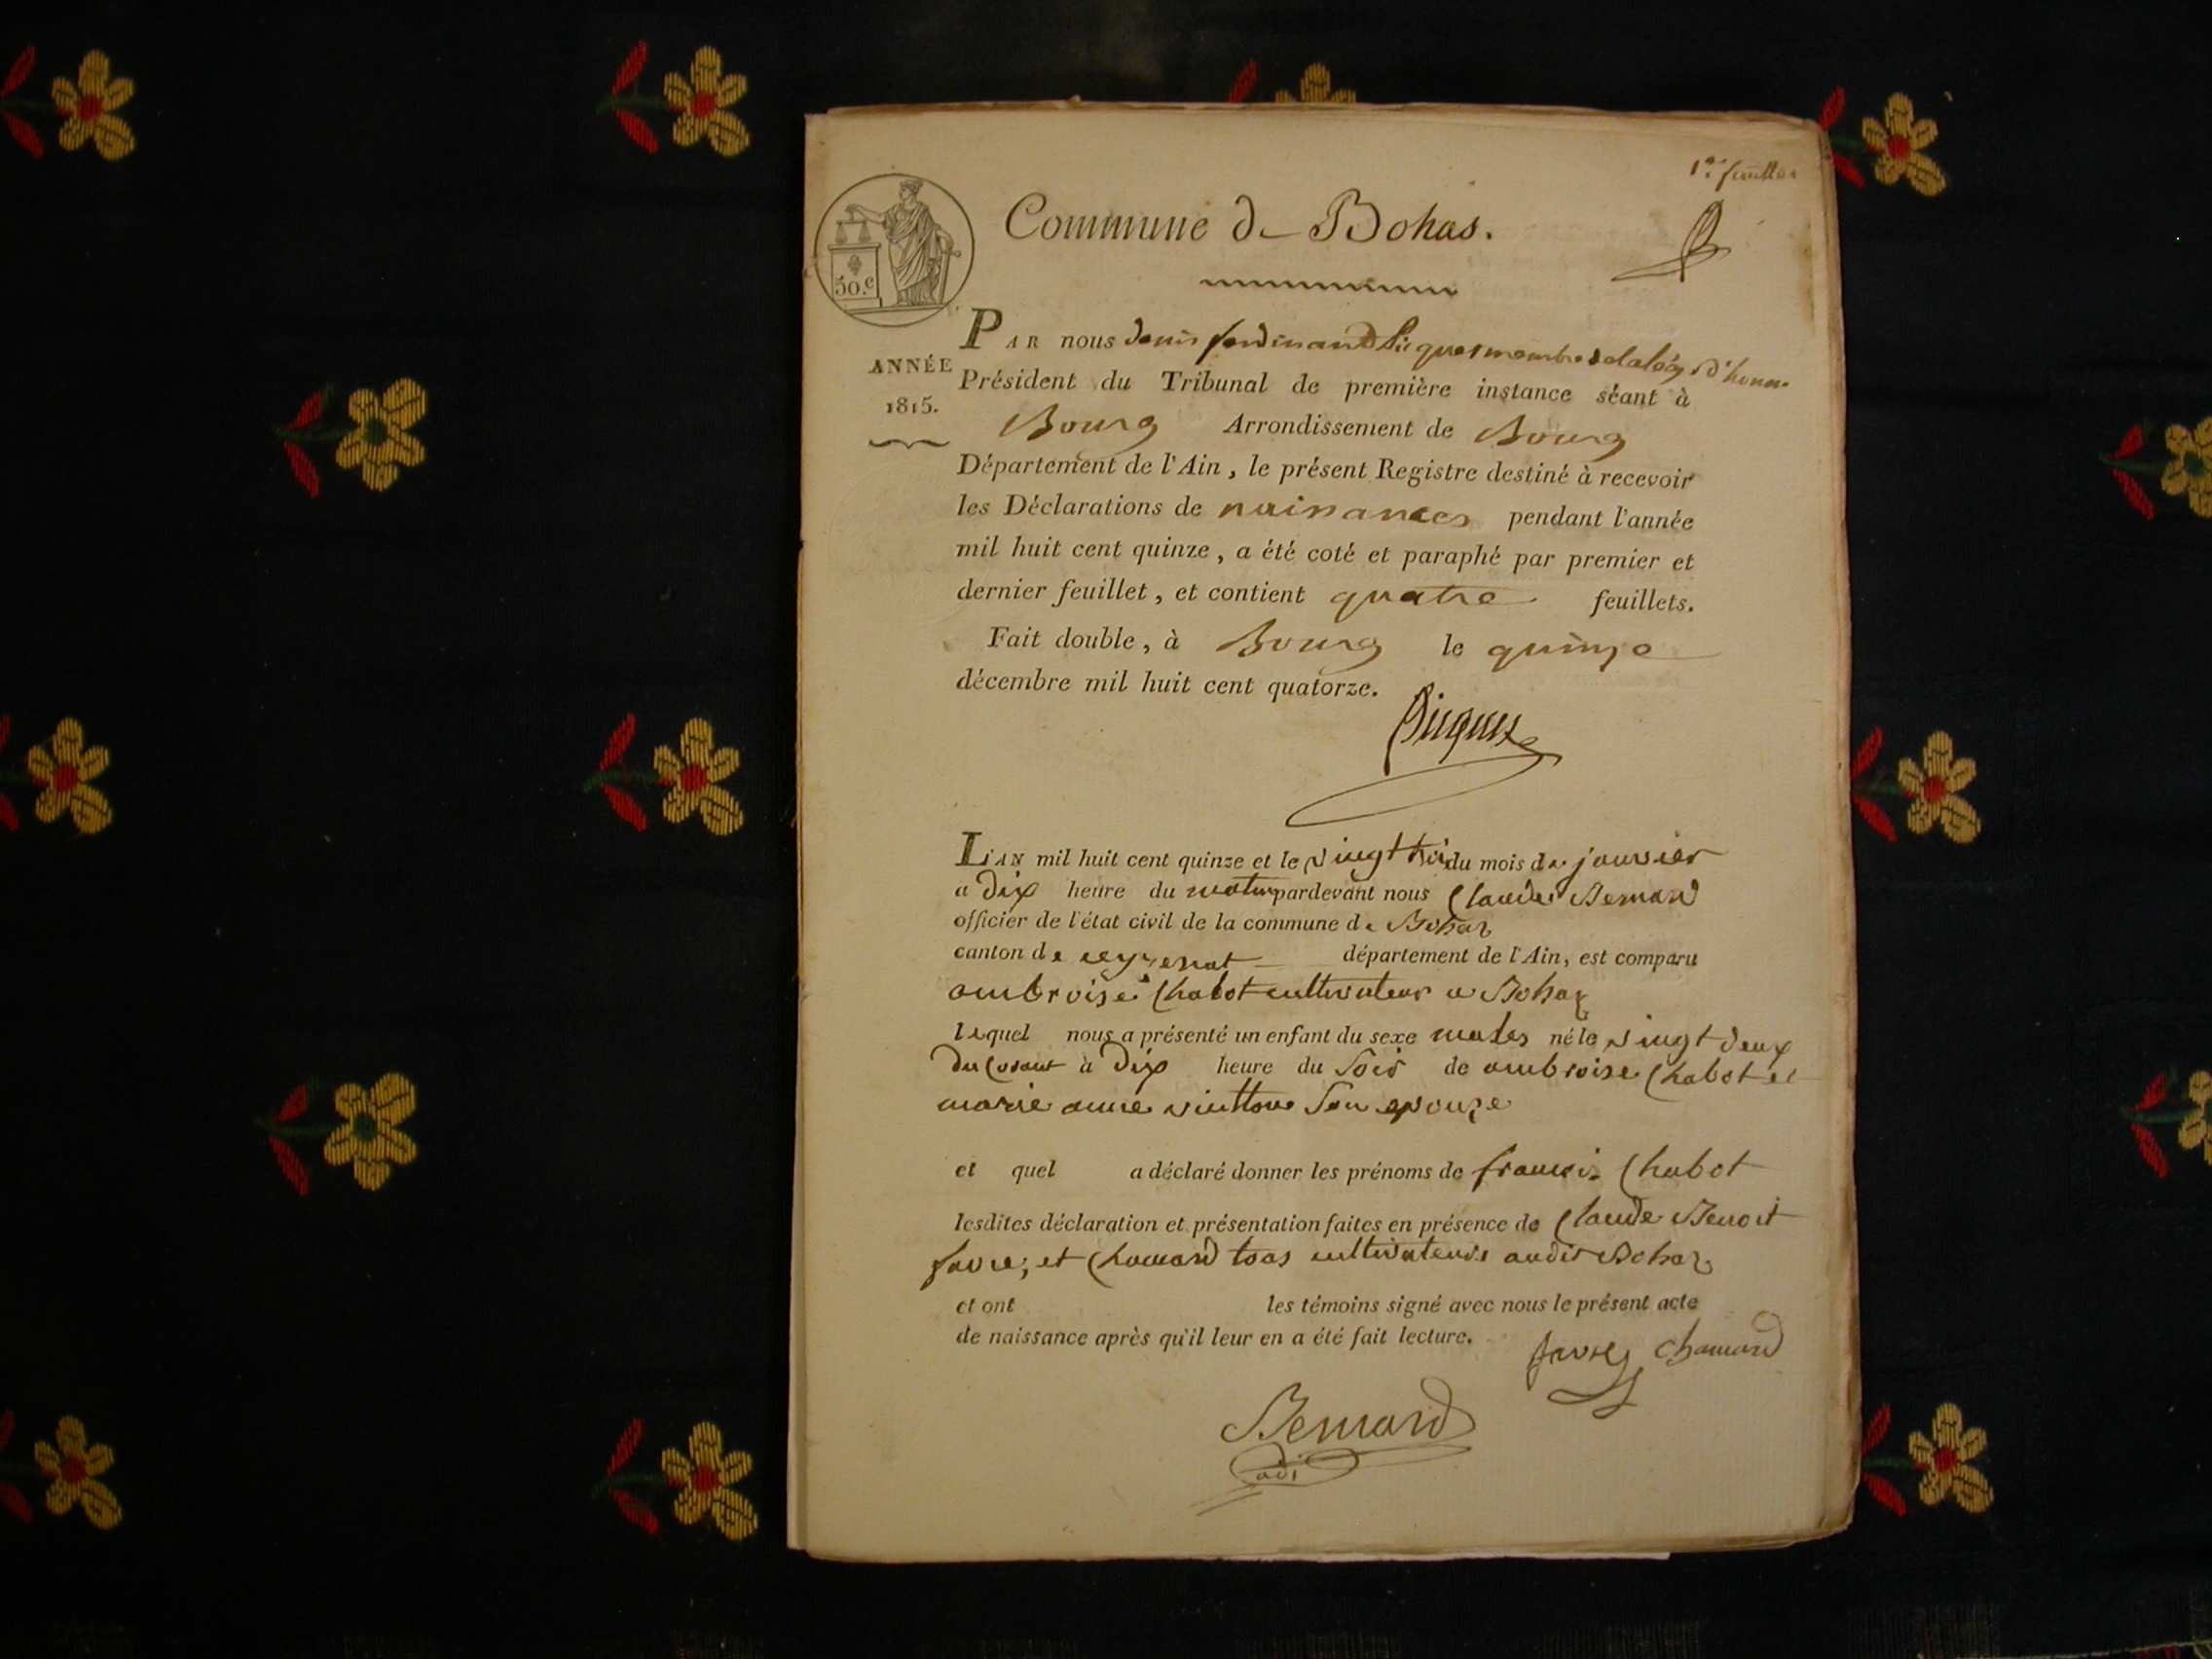 1er feuillet
Commune de Bohas.
50.c
PAR nous denis ferdinand Picquet membre de la lég. d'honn.
ANNÉE
1815.
Président du Tribunal de première instance séant à
Bourg Arrondissement de Bourg
Département de l'Ain, le présent Registre destiné à recevoir
les Déclarations de naissances pendant l'année
mil huit cent quinze, a été coté et paraphé par premier et
dernier feuillet, et contient quatre feuillets.
Fait double, à Bourg le quinze
décembre mil huit cent quatorze.
Picquet
L'AN mil huit cent quinze et le vingt trois du mois de janvier
a dix heure du matin pardevant nous Claude Bernard
officier de l'état civil de la commune de Bohaz
canton de ceyzeriat département de l'Ain, est comparu
ambroise Chabot cultivateur a Bohaz
lequel nous a présenté un enfant du sexe males né le vingt deux
du courant à dix heure du soir de ambroise Chabot et
marie anne son epouze
et quel a déclaré donner les prénoms de francois Chabot
lesdites déclaration et présentation faites en présence de Claude Benoit
favre, et Chanard toas cultivateurs audit Bohaz
et ont les témoins signé avec nous le présent acte
de naissance après qu'il leur en a été fait lecture.
favre Chanard
Bernard
adj